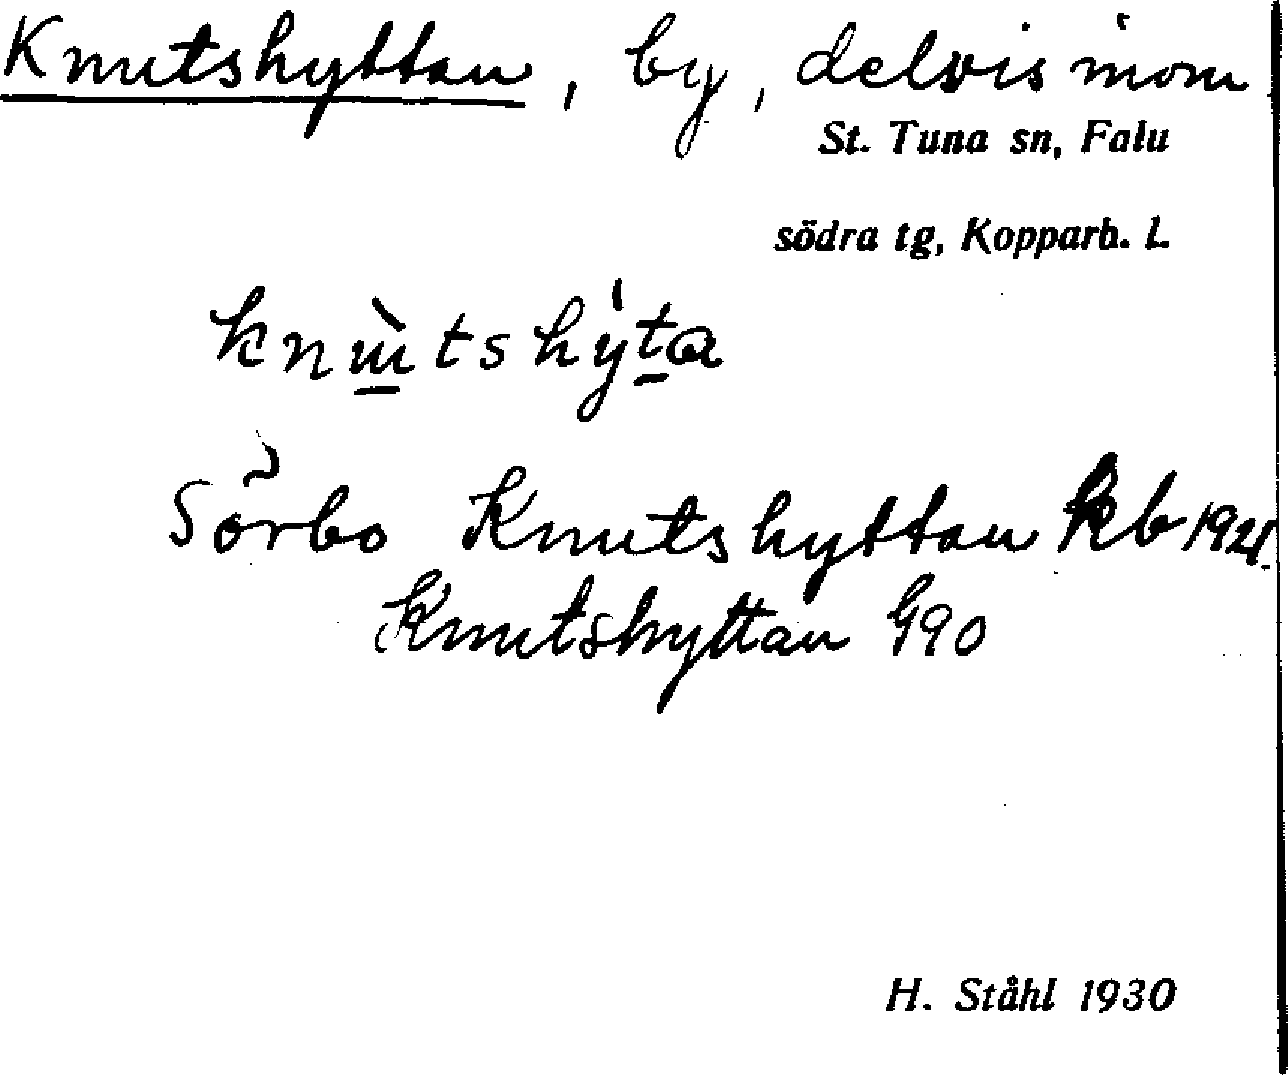 Knutshyttan, by, delvis inom
St. Tuna sn, Falu
södra tg, Kopparb. L
knùtshýta
Sörbo Knutshyttan kb 1921.
Knutshyttan G90
H. Ståhl 1930